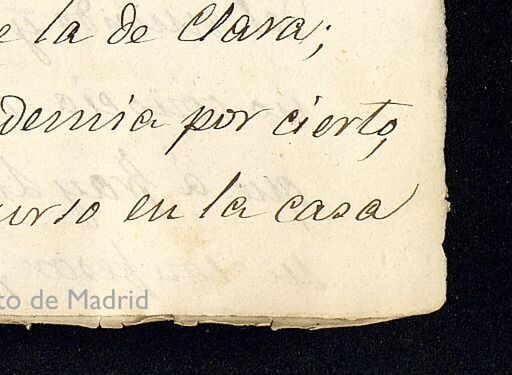 e la de Clara;
demia por cierto,
urso en la casa
to de Madrid